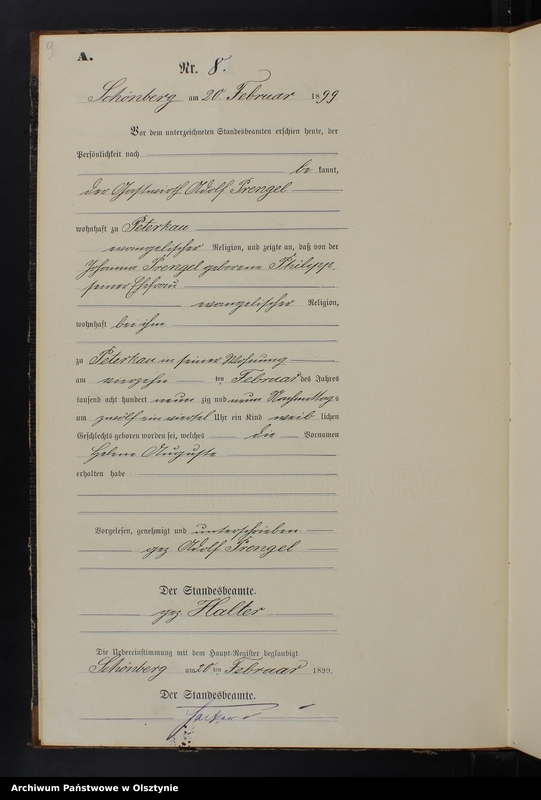 9
A.
Nr. 8.
Schönberg am 20. Februar 1899
Vor dem unterzeichneten Standesbeamten erschien heute, der
Persönlichkeit nach
be kannt,
der Gastwirth Adolf Prengel
wohnhaft zu Peterkau
evangelischer Religion, und zeigte an, daß von der
Johanna Prengel geborene Philipp
seiner Ehefrau
evangelischer Religion,
wohnhaft bei ihm
zu Peterkau in seiner Wohnung
am vierzehn ten Februar des Jahres
tausend acht hundert neun zig und neun Nachmittags
um zwölf ein viertel Uhr ein Kind weib lichen
Geschlechts geboren worden sei, welches die Vornamen
Helene Auguste
erhalten habe
Vorgelesen, genehmigt und unterschrieben
gez Adolf Prengel
Der Standesbeamte.
gez Halter
Die Uebereinstimmung mit dem Haupt-Register beglaubigt.
Schönberg am 20 ten Februar 1899.
Der Standesbeamte.
Archiwum Państwowe w Olsztynie